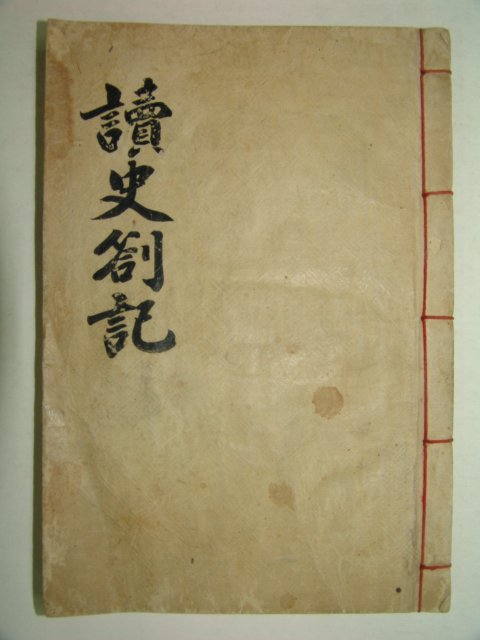 讀史劄記